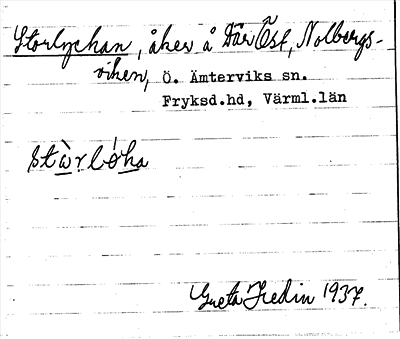 Storlyckan, åker å Där Öst, Nolbergs-
viken, Ö. Ämterviks sn.
Fryksd.hd, Värml.län
Greta Hedin 1937.